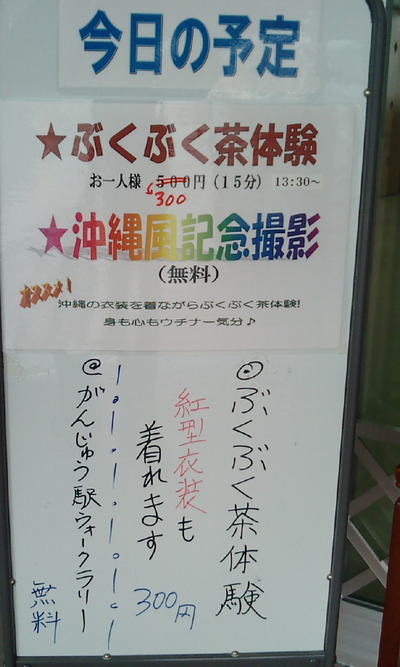 今日の予定
★ぶくぶく茶体験
お一人様 500円(15分) 13:30~
300
★沖縄風記念撮影
(無料)
オススメ!
沖縄の衣装を着ながらぶくぶく茶体験!
身も心もウチナー気分♪
◎ぶくぶく茶体験
紅型衣装も
着れます
300円
@がんじゅう駅ウォークラリー
無料